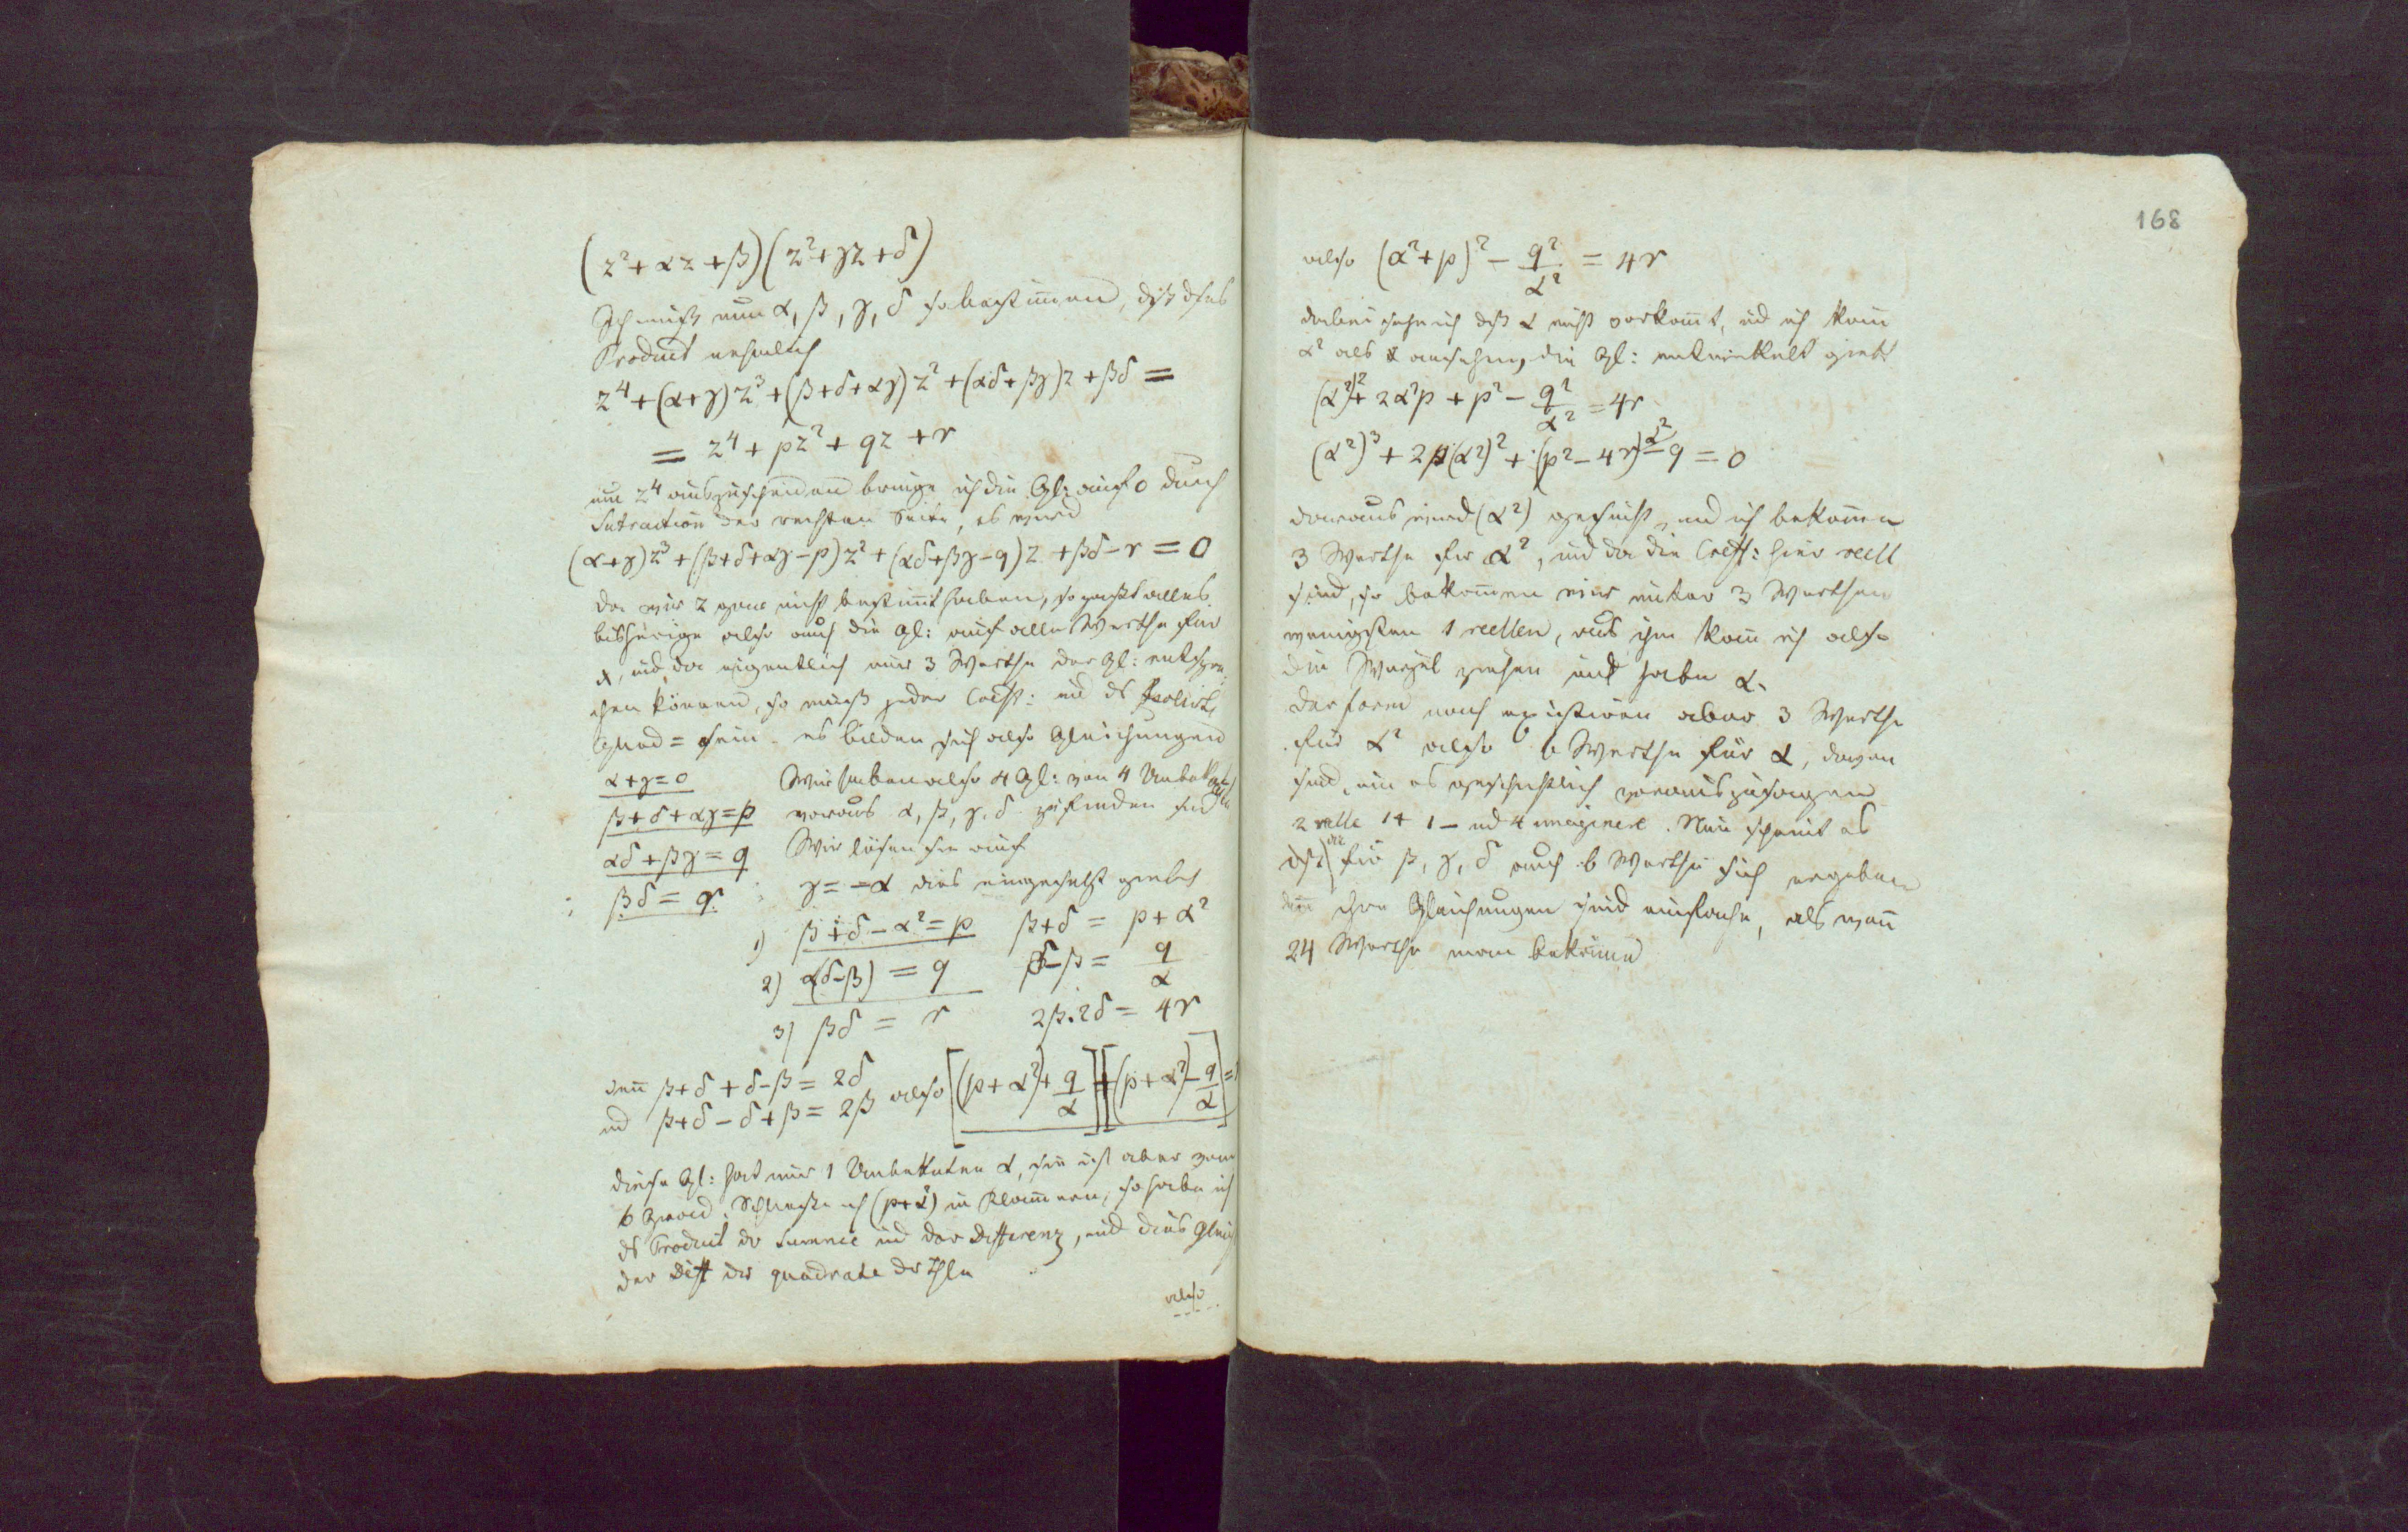 (z²+αz+β)(z²+γz+δ)
Ich muß nun α, β, γ, δ so bestim̅en, dß dses
Product nehmlich
z⁴+(α+γ)z³+(β+δ+αγ)z²+(αδ+βγ)z+βδ =
= z⁴+pz²+qz+r
um z⁴ auszuscheiden bringe ich die Gl: auf 0 durch
Subtraction der rechten Seite, es wird
(α+γ)z³+(β+δ+αγ-p)z²+(αδ+βγ-q)z+βδ-r=0
da wir z gar nicht bestim̅t haben, so paßt alles
bisherige also auch die Gl: auf alle Werthe für
x, und da eigentlich nur 3 Werthe der Gl: entspre
chen können, so muß jeder Coeff: und ds
Glied = sein. es bilden sich also Gleichungen
α+γ=0 Wir haben also 4 Gl: von 4 Unbekan̅ten
β+δ+αγ=p woraus α, β, γ, δ zu finden sind
αδ+βγ=q Wir lösen sie auf
βδ=r γ=-α dies eingesetzt giebt
1) β+δ-α²=p β+δ = p+α²
2) α(δ-β) = q δ-β = q/α
3) βδ = r 2β.2δ = 4r
den̅ β+δ+δ-β = 2δ
und β+δ-δ+β = 2β also [(p+α²)+q/α][(p+α²)-q/α]=
diese Gl: hat nur 1 Unbekanten α, sie ist aber vom
6 Grad. Schließe ich (p+α²) in Klam̅ern, so habe ich
ds Product der Summe und der Differenz, und dies gleich
der Diff der quadrate der Thle
also
168
also (α²+p)² - q²/α² = 4r
dabei sehe ich dß α nicht vorkom̅t, und ich kan̅
α² als x ansehen, die Gl: entwickelt giebt
(α²)²+2α²p+p²-q²/α²=4r
(α²)³+2p(α²)²+(p²-4r)α²-q=0
daraus wird (α²) gesucht, und ich bekom̅en
3 Werthe für α², und da die Coeff: hier reell
sind, so bekom̅en wir unter 3 Werthen
wenigsten 1 reellen, aus ihm kan̅ ich also
die Wurzel ziehen und habe α.
der form nach existiren aber 3 Werthe
für α² also 6 Werthe für α, davon
sind, um es geschichtlich vorauszusagen
2 relle 1+ 1- und 4 imaginere. Nun scheint es
dß für β, γ, δ auch 6 Werthe sich ergeben
den̅ ihre Gleichungen sind einfache, als wan̅
24 Werthe man bekäme